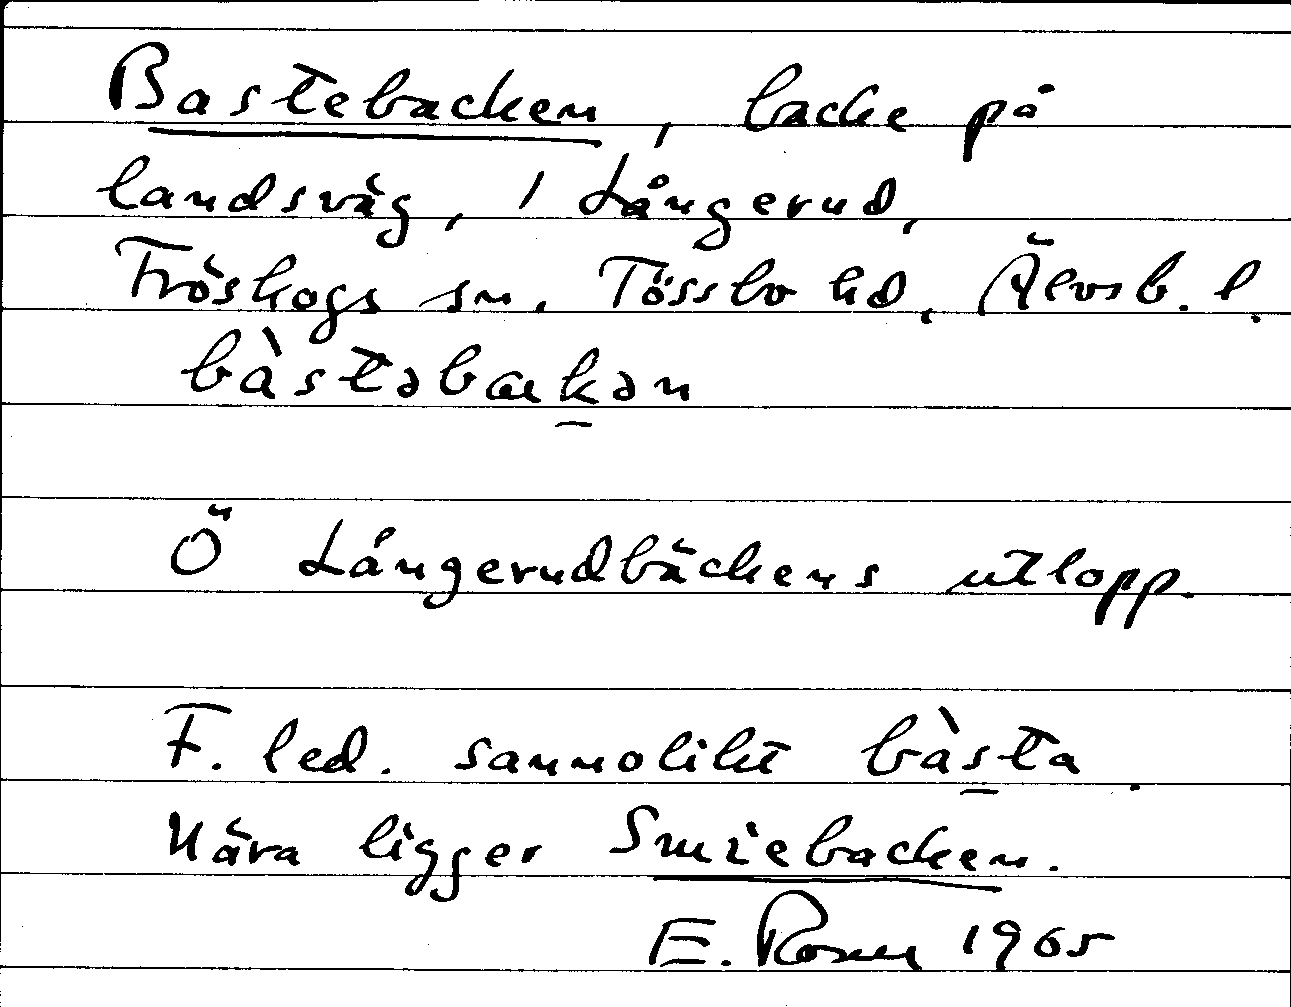 Bastebacken, backe på
landsväg, 1 Långerud,
Fröskogs sn. Tössbo hd, Älvsb. l.
bàstəbakən
Ö Långerudbäckens utlopp.
F. led. sannolikt bàsta.
Nära ligger Smiebacken.
E. Rosen 1965